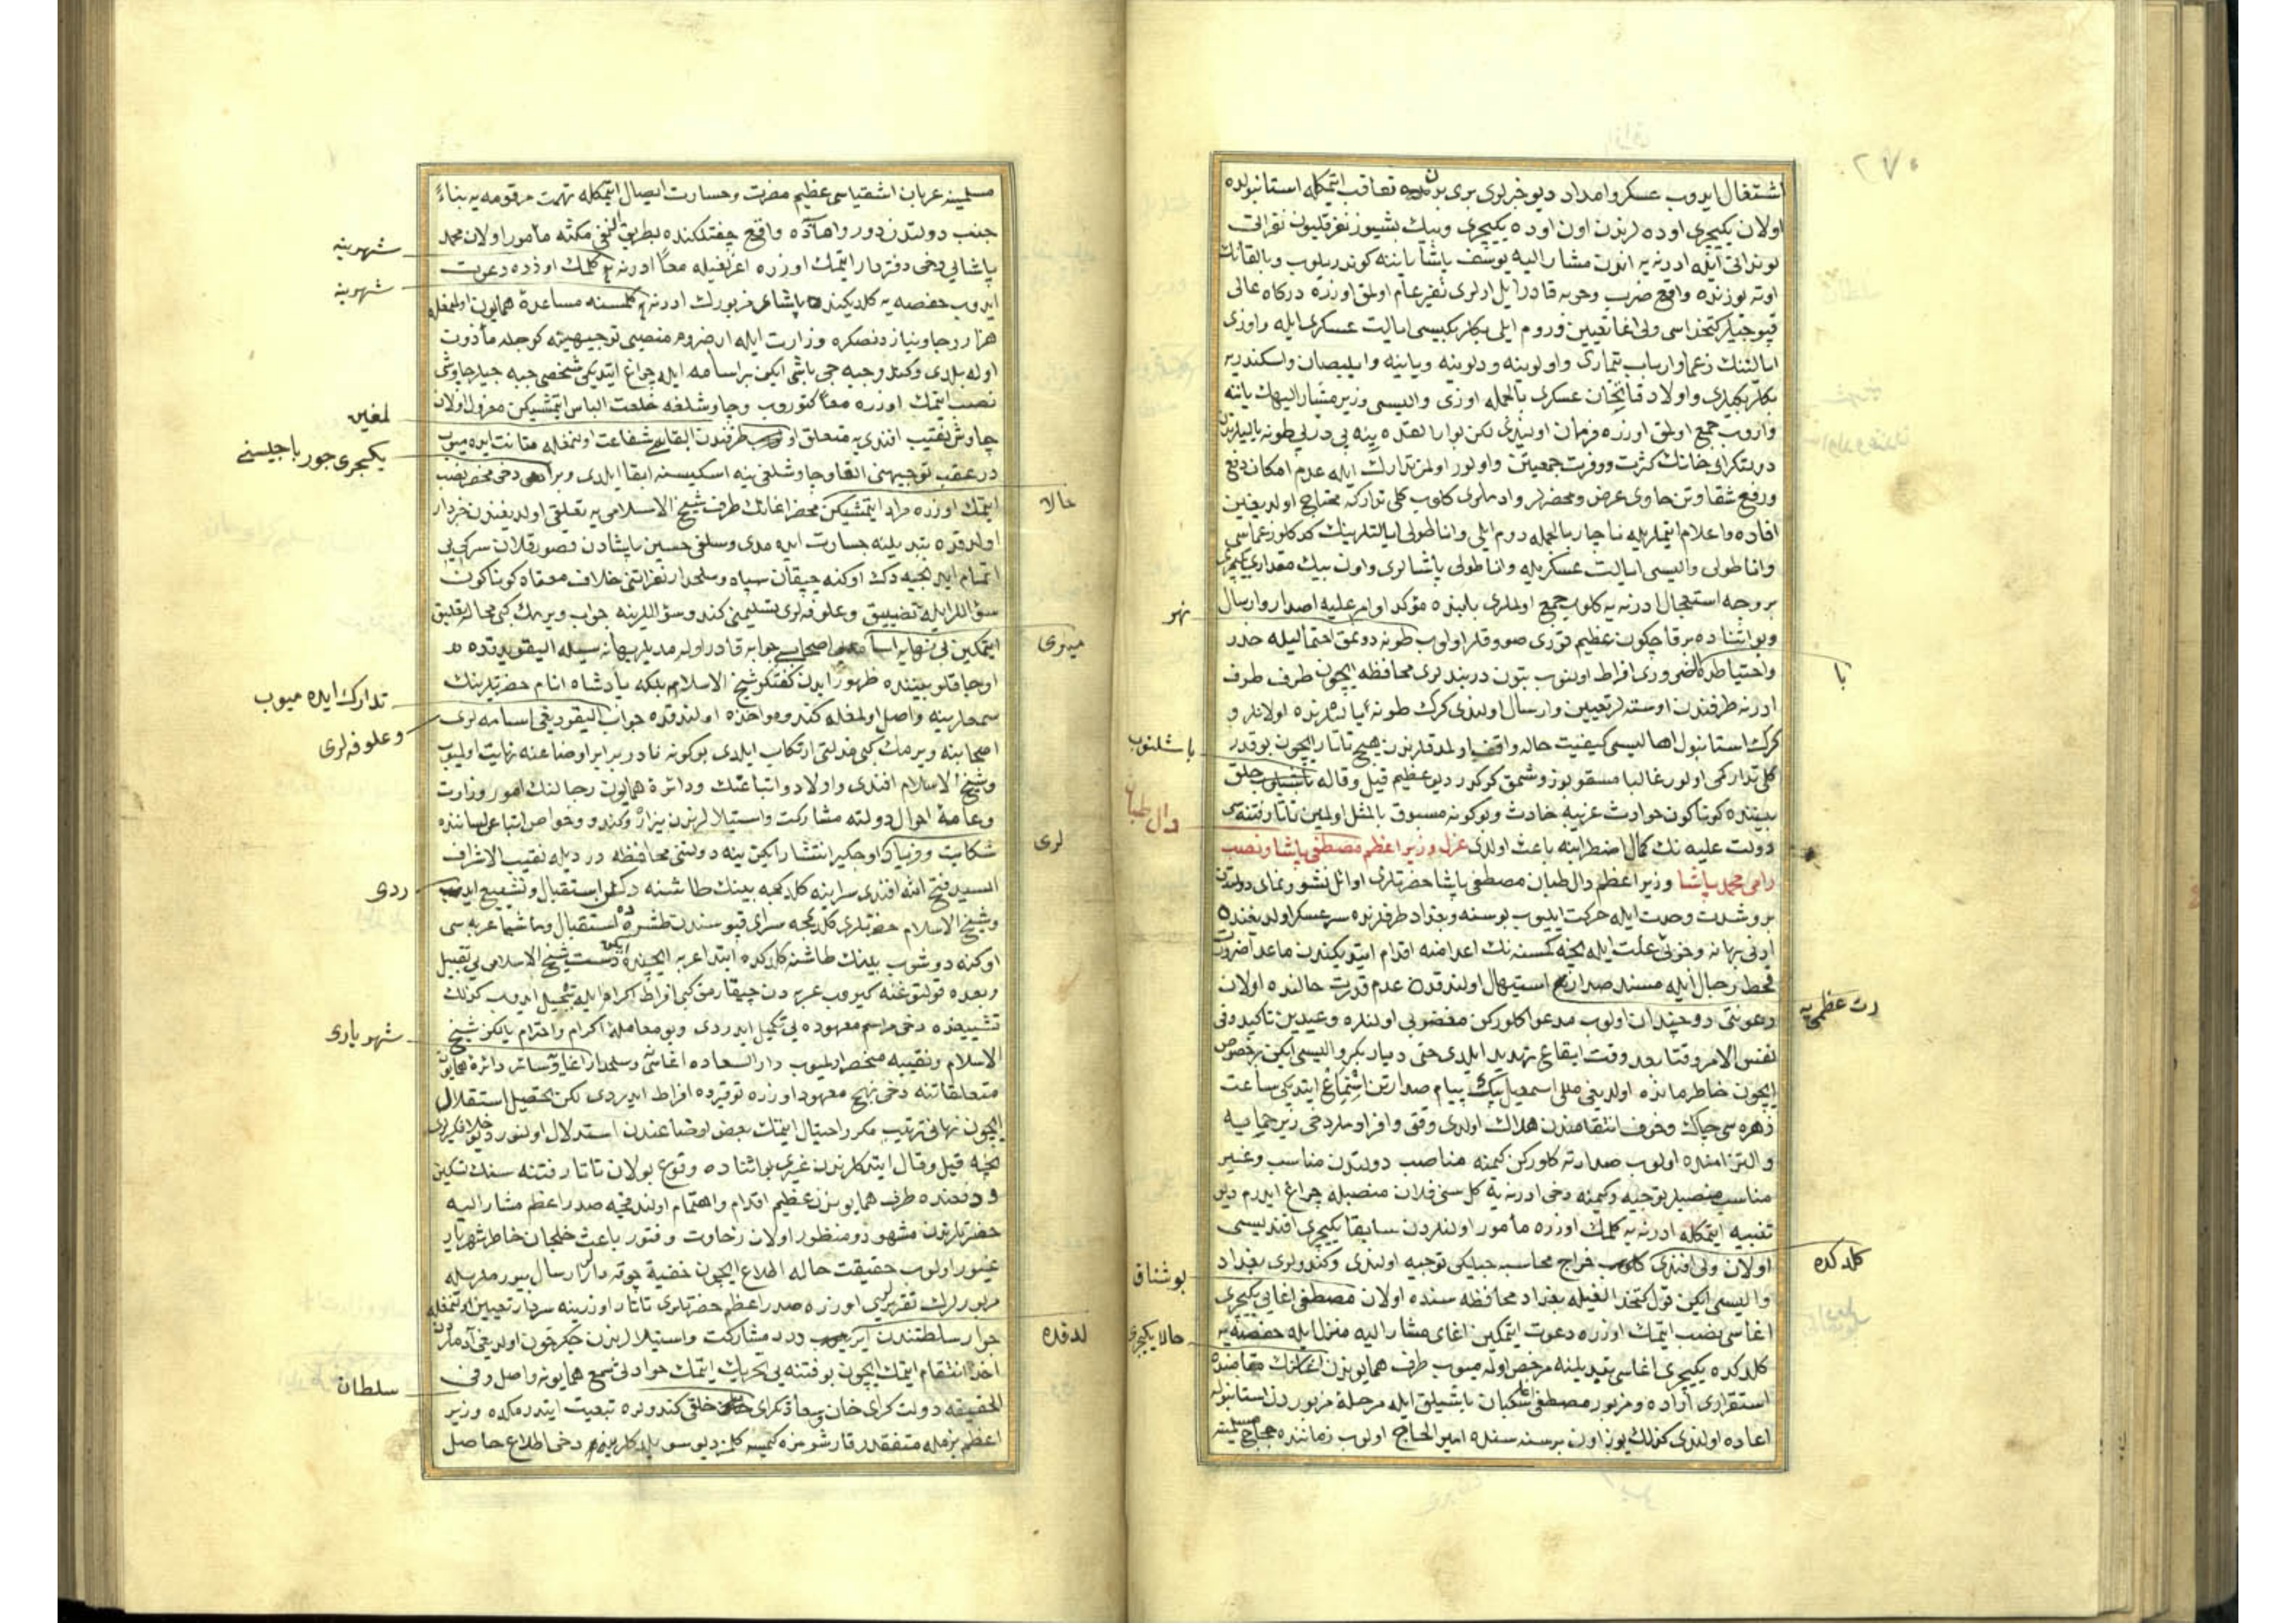 ٢٧٠
اشتغال ایدوب عسکر و امداد دیو خبرلری بری برین تعاقب ایتمکله استانبولده
اولان یکیچری اوده لرندن اون اوده یکیچری و بیك بشیوز نفر قلیون نفراتی
ادرنه یه اندن مشار الیه یوسف پاشا یاننه کوندریلوب و بالقانك
اوته یوزنده واقع ضرب و حربه قادر ایل ارلری نفیر عام اولمق اوزره درکاه عالی
قپوجیلر کتخداسی ولی اغا تعیین و روم ایلی بکلربکیسی ایالت عسکری ایله و اوزی
ایالتنك زعما و ارباب تیماری و اولونیه و دلونیه و یانیه و ایلبصان و اسکندریه
بکلری و اولاد فاتحان عسکری بالجمله اوزی والیسی وزیر مشار الیهك یاننه
واروب جمع اولمق اوزره فرمان اولندی لکن
دولتکرای خانك کثرت و وفرت جمعیتن و اولور اولمز تدارك ایله عدم امکان دفع
و رفع شقاوتن حاوی عرض و محضرلر و ادملری کلوب کلی تدارکه محتاج اولدیغین
افاده و اعلام ایتملریله ناچار بالجمله روم ایلی و اناطولی ایالتلرینك زعماسی
و اناطولی والیسی ایالت عسکریله و اناطولی پاشالری و اون بیك مقداری یکیچری
بر وجه استعجال ادرنه یه کلوب جمع اولملری بابنده مؤکد اوامر علیه اصدار و ارسال
نهر
و بو اثناده بر قاچ کون عظیم قوری صوقلر اولوب طونه دوکمق احتمالیله حذر
با
و احتیاطده ضروری افراط اولنوب بتون دربندلری محافظه ایچون طرف طرف
ادرنه طرفندن اوسته لر تعیین و ارسال اولندی کرك طونه یالیلرنده اولانلر و
کرك استانبول اهالیسی کیفیت حاله واقف اولمدقلرندن هیچ تاتار ایچون بو قدر
باشلنوب
کلی تدارکمی اولور غالبا مسقو بوز دشمن کوکور دیو عظیم قیل و قاله خلق
بیننده کوناکون حوادث غریبه حادث و بو کونه مسبوق بالمثل اولمین تاتار فتنه سی
دال طبان
دولت علیه نك کمال اضطرابنه باعث اولدی عزل وزیر اعظم مصطفی پاشا و نصب
رامی محمد پاشا وزیر اعظم دال طبان مصطفی پاشا حضرتلری اوائل نشو و نمای دولتدن
بر و شدت و حدت ایله حرکت ایلیوب بوسنه و بغداد طرفلرنده سرعسکر اولدیغنده
ادنی بهانه و جزئی علت ایله نیجه کمسنه نك اعدامنه اقدام ایتدیکندن ماعدا ضرورت
قحط رجال ایله مسند صدارت استیهال اولندقده عدم قدرت حالنده اولان
رت عظمی یه
رعونتی دو چندان اولوب مدعوا کلورکن مغضوبی اولنلره وعیدین تاکید و فی
نفس الامر وقتا بعد وقت ایقاع تهدید ایلدی حتی دیار بکر والیسی ایکن بر خصوص
ایچون خاطر مانده اولدیغی ملی اسمعیل بیك پیام صدارتن استماع ایتدیکی ساعت
زهره سی چاك و خوف انتقامندن هلاك اولدی وفق و افراوملر دخی زیر حمایه
و التزامنده اولوب صدارته کلورکن کیمنه مناصب دولتدن مناسب و غیر
مناسب منصبلر توجیه و کیمنه دخی ادرنه یه کل سنی فلان منصبله چراغ ایدرم دیو
تنبیه ایتمکله ادرنه یه کلمك اوزره مأمور اولنلردن سابقا یکیچری افندیسی
کلدکده
اولان ولی افندی خراج محاسبه جیلکی توجیه اولندی و کندولری بغداد
بوشناق
والیسی ایکن قول کتخدالغیله بغداد محافظه سنده اولان مصطفی اغایی یکیچری
اغاسی نصب ایتمك اوزره دعوت ایتمکین اغای مشار الیه منزل ایله حفصه یه
حالا یکیچری
کلدکده یکیچری اغاسی تبدیلنه مرخص اوله میوب طرف همایوندن اغانك مقامنده
استقراری اراده و مزبور مصطفی اغا سکبان باشیلق ایله مرحله مزبوردن استانبوله
اعاده اولندی کذلك یوز اون بر سنه سنده امیر الحاج اولوب زماننده حجاج
مسلمینه عربان اشقیاسی عظیم مضرت و خسارت ایصال ایتمکله تهمت مرقومه یه بناءً
جنب دولتدن دور و اماده واقع چفتلکنده بطریق النفی مکثه مأمور اولان محمد
شهرینه
پاشایی دخی دفتردار ایتمك اوزره اغریغیله معاً ادرنه یه کلمك اوزره دعوت
شهرینه
ایدوب حفصه یه کلدیکنده پاشای مزبورك ادرنه یه کلمسنه مساعدۀ همایون اولمغله
هزار رجا و نیازدنصکره وزارت ایله ارضروم منصبی توجیهینه کوجله مأذون
اوله بلدی و کذلك جبه جی باشی ایکن بر اسامه ایله چراغ ایتدیکی شخصی جبه جیلر چاوشی
نصب ایتمك اوزره معاً کتوروب و چاوشلغه خلعت الباس ایتمشیکن معزول اولان
لمغین
چاوش نقیب افندی یه متعلق طرفندن ابقاسیچون شفاعت اولنمغله متانت ایده میوب
یکیچری جورباجیسنی
در عقب توجیهنی الغا و چاوشلغی ینه اسکیسنه ابقا ایلدی و بر دخی محضر نصب
حالا
ایتمك اوزره مراد ایتمشیکن محضر اغانك طرف شیخ الاسلامی یه تعلقی اولدیغندن خبردار
اولدقده تبدیلنه جسارت ایده مدی و سلفی حسین پاشادن قصور قلان سرکی یی
اتمام ایدنجیه دك اوکنه چیقان سپاه و سلحدار نفراتنی خلاف معتاد کوناکون
سؤاللر ایله تضییق و علوفه لری تسلیمنی کندو سؤاللرینه جواب ویرمك کبی محاله تعلیق
میری
ایتمکین بی نهایه اصحابی جوابه قادر اوله مدیلر بهانه سیله الیقویدقده
تدارك ایده میوب
اوجاقلو بیننده ظهور ایدن کفتکو شیخ الاسلام بلکه پادشاه انام حضرتلرینك
سمعلرینه واصل اولمغله کندو مؤاخذه اولندقده جواب الیقودیغی اسامه لری
و علوفه لری
اصحابنه ویرمك کبی مذلتی ارتکاب ایلدی بو کونه نا در برابر اوضاعنه نهایت اولمیوب
و شیخ الاسلام افندی و اولاد و اتباعنك و دائرۀ همایون رجالنك امور وزارت
و عامۀ احوال دولته مشارکت و استیلالرندن بیزار و کندو و خواص اتباعی لساننده
لری
شکایت و فریاد اوجکیر انتشار ایکن ینه دولتنی محافظه دردیله نقیب الاشراف
السید فتح الله افندی سراینه کلدکجه بینك طاشنه دکین استقبال و تشییع
ردی
و شیخ الاسلام حضرتلری کلدکجه سرای قپوسندن طشره ده استقبال و ماشیا عربه سی
اوکنه دوشوب بینك طاشنه کلدکده ابتدا عربه ایچنده ایکن دست شیخ الاسلامی یی تقبیل
و بعده قولتوغنه کیروب عربه دن چیقارمق کبی افراط اکرام ایله تبجیل ایدوب کذلك
تشییعده دخی مراسم معهوده یی تکمیل ایدردی و بو معامله اکرام و احترام یالکز شیخ
شهریاری
الاسلام و نقیبه منحصر اولمیوب دار السعاده اغاسی و سلحدار اغا و سائر دائرۀ همایون
متعلقاتنه دخی نهج معهود اوزره توقیرده افراط ایدردی لکن تحصیل استقلال
ایچون نهانی ترتیب مکر و احتیال ایتمك بعض اوضاعندن استدلال اولنور دیو
نیجه قیل و قال ایتدکلرندن غیری بو اثناده وقوع بولان تاتار فتنه سنك تسکین
و دفعنده طرف همایوندن عظیم اقدام و اهتمام اولندقجه صدر اعظم مشار الیه
حضرتلرندن مشهود و منظور اولان رخاوت و فتور باعث خلجان خاطر شهریار
غیور اولوب حقیقت حاله اطلاع ایچون خفیة چوقه دارلر ارسال بیورملریله
مزبورلرك تقریرلری اوزره صدر اعظم حضرتلری تاتار اوزرینه سردار تعیین ایتمغله
لدقده
جوار سلطنتدن درد مشارکت و استیلالرندن جکرخون اولدیغی آدملردن
اخذ انتقام ایتمك ایچون بو فتنه یی تحریك ایتمك موادلری سمع همایونه واصل و فی
سلطان
الحقیقه دولت کرای خان و سعادتکرای خلقی کندولره تبعیت ایتدرمکده وزیر
اعظم بزمله متفقدر قارشومزه کیمسه کلمز دیو سویلدکلرینه دخی اطلاع حاصل